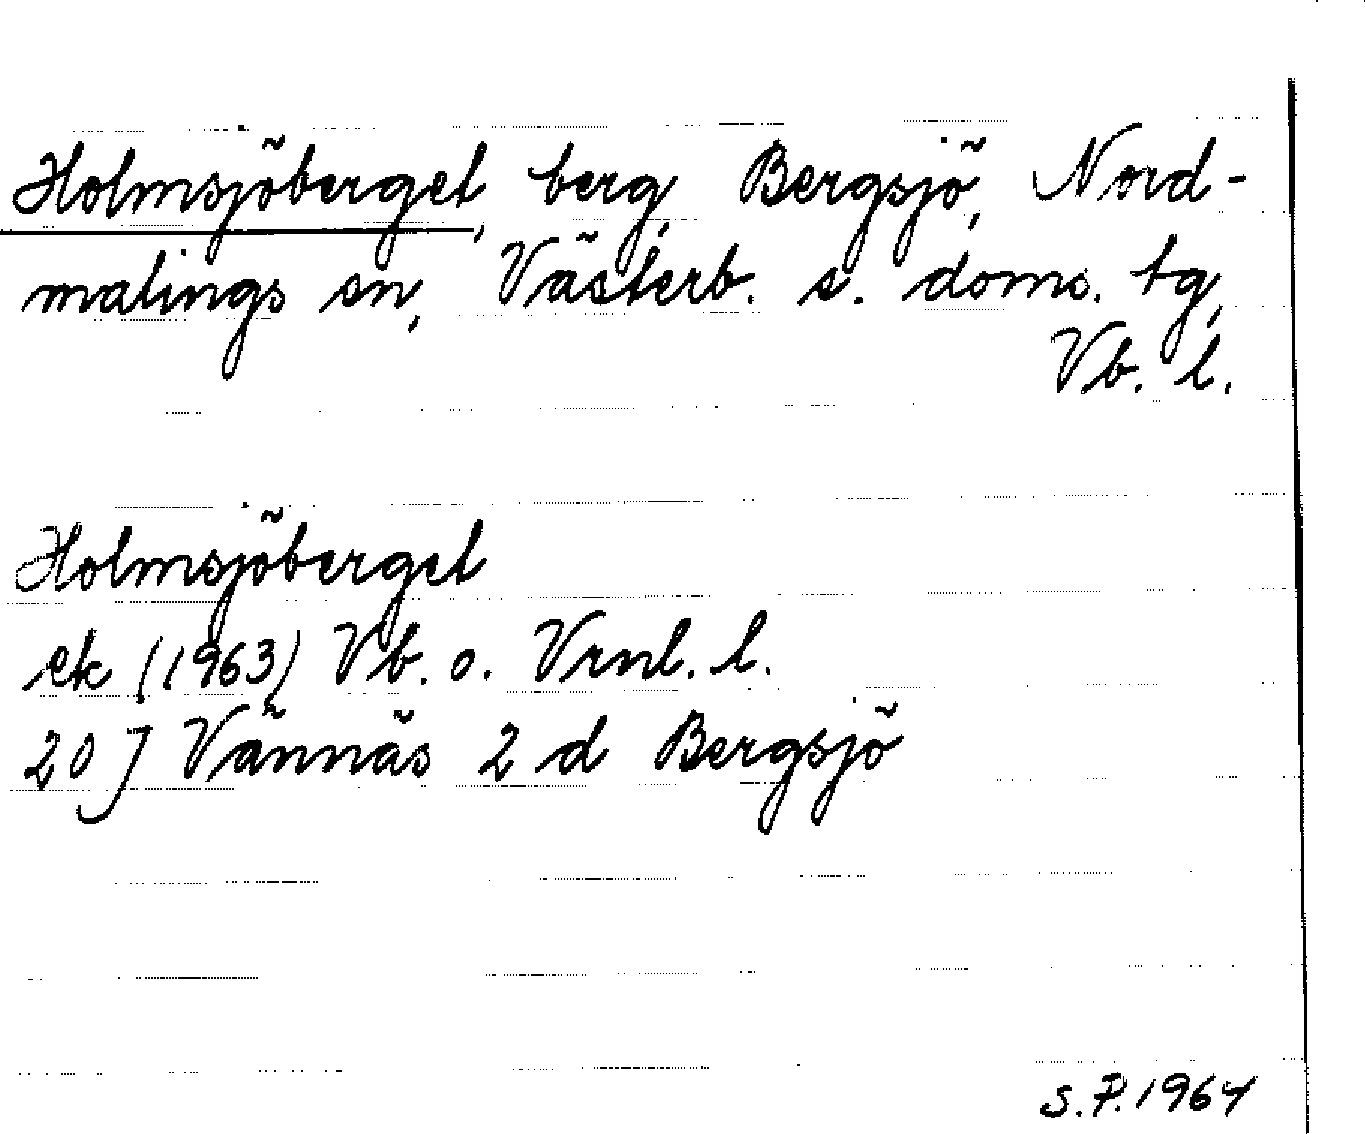 Holmsjöberget, berg, Bergsjö, Nord-
malings sn, Västerb. s. doms. tg,
Vb. l.
Holmsjöberget
ek (1963) Vb. o. Vrnl. l.
20 J Vännäs 2 d Bergsjö
S.P. 1964